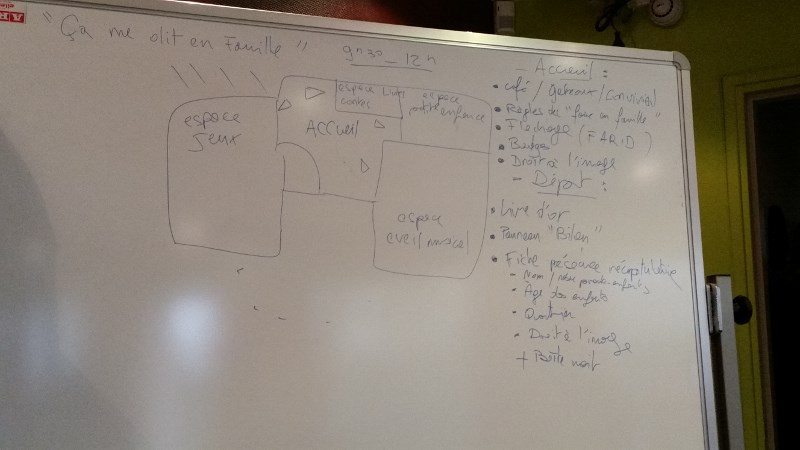 "Ça me dit en Famille"
9h30 _ 12h
espace
Jeux
espace Livres
contes
espace
petite enfance
ACCUEIL
espace
eveil musical
- Accueil :
• café / gateaux / convivial
• Règles du "faire en famille"
• Fléchage (FARID)
• Badges
• Droit à l'image
- Départ :
• Livre d'or
• Panneau "Bilan"
• Fiche présence récapitulative
- Nom / parents-enfants
- Âge des enfants
• Quartier
• Droit à l'image
+ Boîte